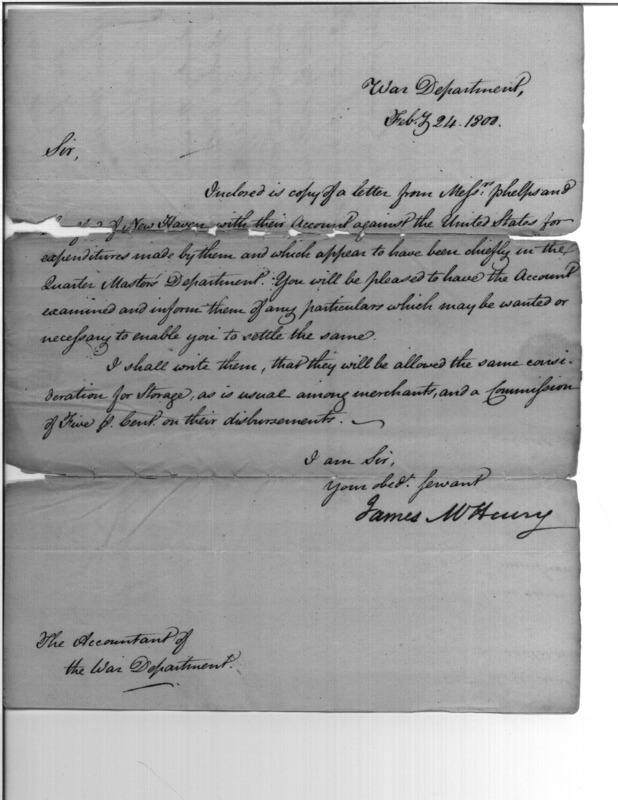 War Department,
Feb.y 24. 1800.
Sir,
Inclosed is copy of a letter from Messrs. Phelps and
of New Haven, with their Account against the United States for
expenditures made by them and which appear to have been chiefly in the
Quarter Masters Department. You will be pleased to have the Account
examined and inform them of any particulars which may be wanted or
necessary to enable you to settle the same.
I shall write them, that they will be allowed the same consi-
deration for Storage, as is usual among merchants, and a Commission
of Five p. Cent. on their disbursements.
I am Sir,
Your obedt. Servant
James McHenry
The Accountant of
the War Department.